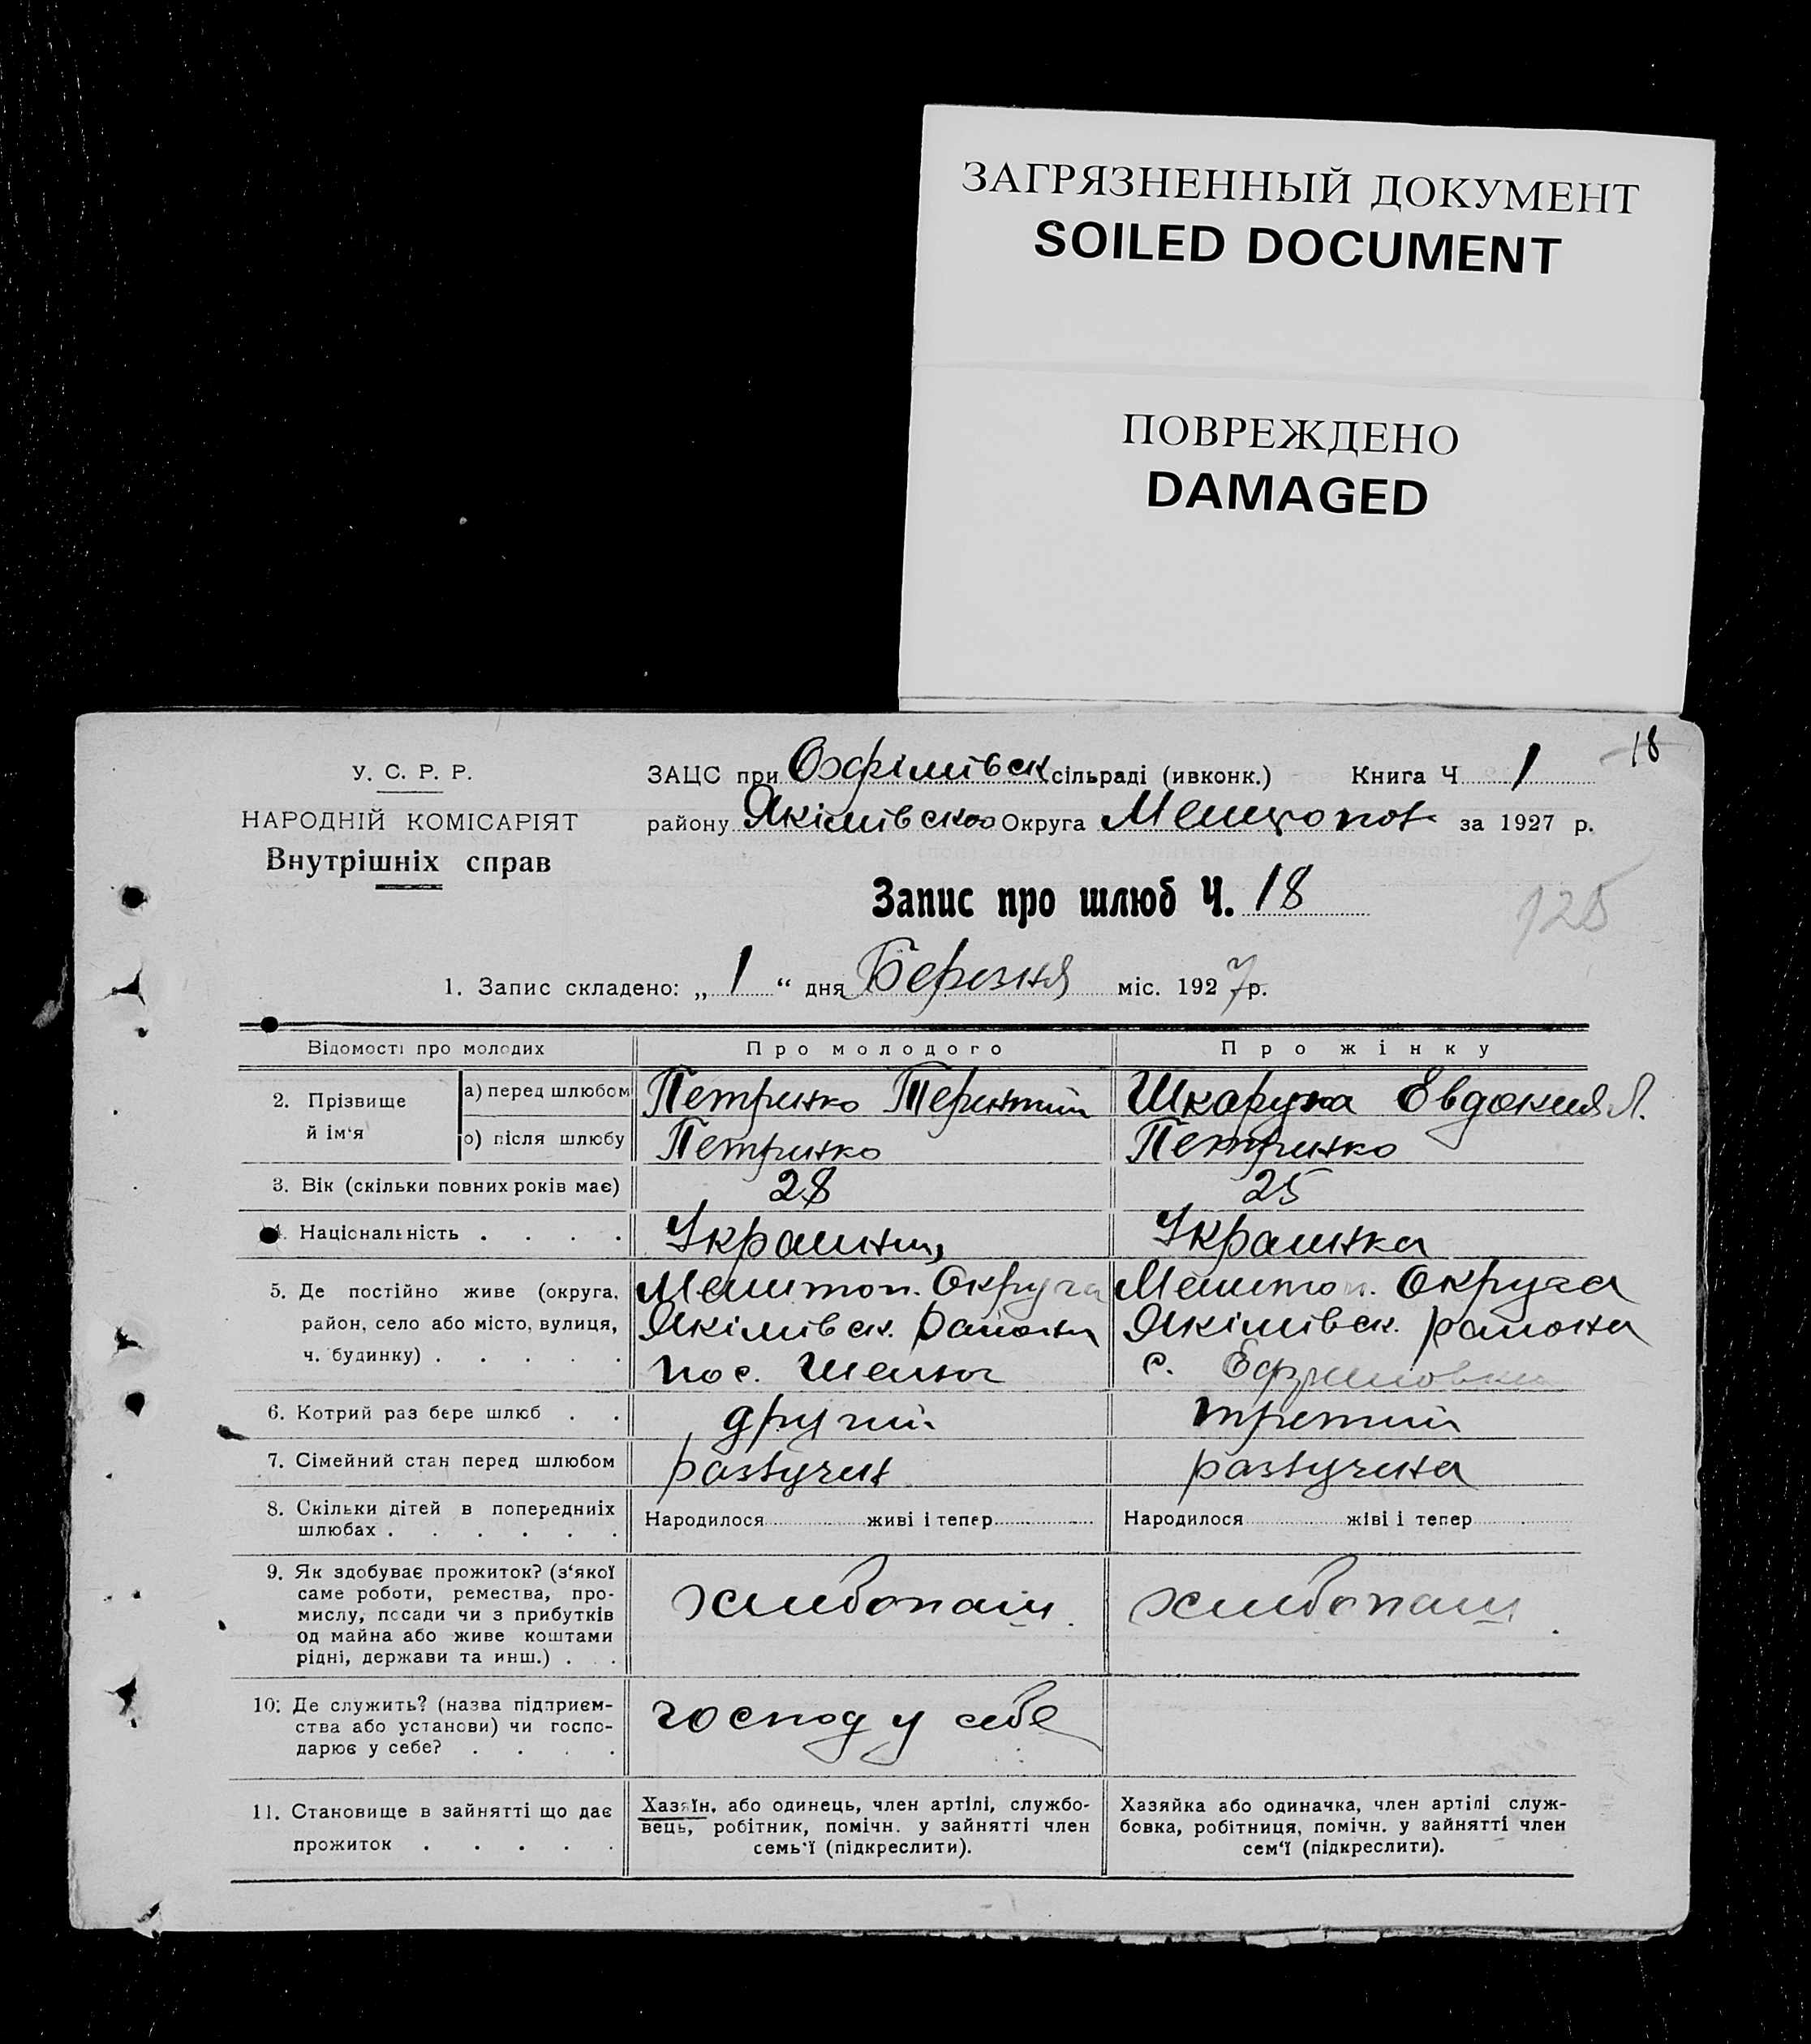 ЗАГРЯЗНЕННЫЙ ДОКУМЕНТ
SOILED DOCUMENT
ПОВРЕЖДЕНО
DAMAGED
18
У. С. Р. Р.
НАРОДНІЙ КОМІСАРІЯТ
Внутрішніх справ
ЗАЦС при Охфімівск сільраді (ивконк.) Книга Ч 1
району Якімівского Округа Мелитопол. за 1927 р.
Запис про шлюб Ч. 18
125
1. Запис складено: „ 1 “ дня Березня міс. 1927 р.
Відомості про молодих Про молодого Про жінку
2. Прізвище й ім‘я
а) перед шлюбом Петренко Терентий Шкарупа Евдокия Л.
о) після шлюбу Петренко Петренко
3. Вік (скільки повних років має) 28 25
4. Національність . . . . Украинец Украинка
5. Де постійно живе (округа, Мелитоп. Округа Мелитоп. Округа
район, село або місто, вулиця, Якімівск. района Якімівск. района
ч. будинку) . . . . . пос. Шелюг с. Ефримовки
6. Котрий раз бере шлюб . . другий третий
7. Сімейний стан перед шлюбом разлучен разлучена
8. Скільки дітей в попередниіх Народилося живі і тепер Народилося жіві і тепер
шлюбах . . . . . .
9. Як здобуває прожиток? (з‘якої
саме роботи, ремества, про- хлебопаш. хлебопаш
мислу, посади чи з прибутків
од майна або живе коштами
рідні, держави та инш.) . . .
10. Де служить? (назва підприєм- господ у себе
ства або установи) чи госпо-
дарює у себе? . . . .
11. Становище в зайнятті що дає
прожиток . . . . .
Хазяїн, або одинець, член артілі, службо-
вець, робітник, помічн. у зайнятті член
семь‘ї (підкреслити).
Хазяйка або одиначка, член артілі служ-
бовка, робітниця, помічн. у зайнятті член
сем‘ї (підкреслити).